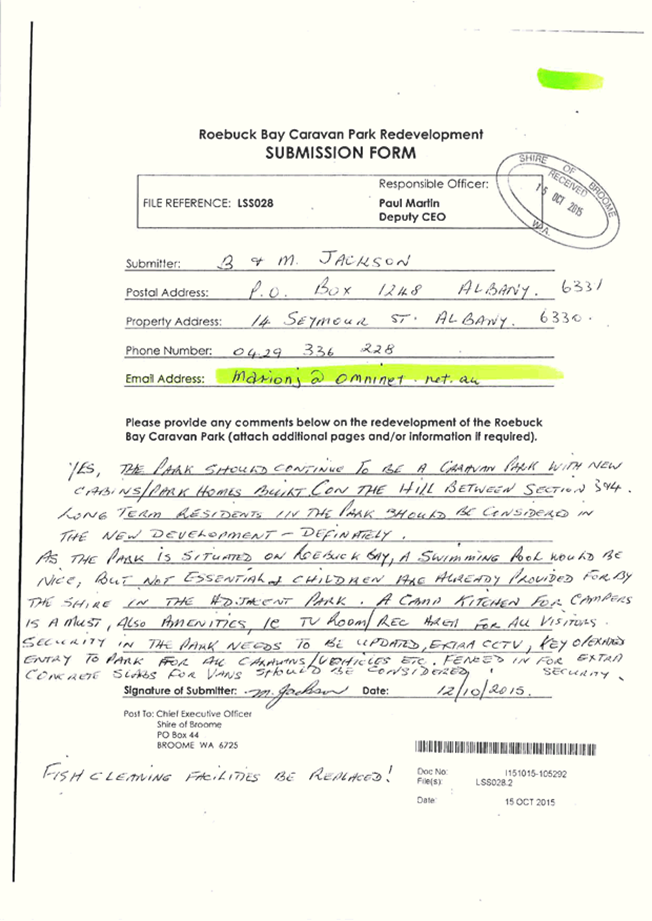 Roebuck Bay Caravan Park Redevelopment
SUBMISSION FORM
FILE REFERENCE: LSS028
Responsible Officer:
Paul Martin
Deputy CEO
SHIRE OF BROOME
RECEIVED
15 OCT 2015
W.A.
Submitter: B & M. JACKSON
Postal Address: P.O. BOX 1248 ALBANY. 6331
Property Address: 14 SEYMOUR ST. ALBANY. 6330.
Phone Number: 0429 336 228
Email Address: marionj@omninet.net.au
Please provide any comments below on the redevelopment of the Roebuck
Bay Caravan Park (attach additional pages and/or information if required).
YES, THE PARK SHOULD CONTINUE TO BE A CARAVAN PARK WITH NEW
CABINS/PARK HOMES BUILT (ON THE HILL BETWEEN SECTION 3&4.
LONG TERM RESIDENTS IN THE PARK SHOULD BE CONSIDERED IN
THE NEW DEVELOPMENT - DEFINATELY.
AS THE PARK IS SITUATED ON ROEBUCK BAY, A SWIMMING POOL WOULD BE
NICE, BUT NOT ESSENTIAL & CHILDREN ARE ALREADY PROVIDED FOR BY
THE SHIRE IN THE ADJACENT PARK. A CAMP KITCHEN FOR CAMPERS
IS A MUST, ALSO AMENITIES, IE TV ROOM/REC AREA FOR ALL VISITORS.
SECURITY IN THE PARK NEEDS TO BE UPDATED, EXTRA CCTV, KEY OPERATED
ENTRY TO PARK FOR ALL CARAVANS/VEHICLES ETC. FENCED IN FOR EXTRA
SECURITY.
CONCRETE SLABS FOR VANS SHOULD BE CONSIDERED!
Signature of Submitter: M. Jackson Date: 12/10/2015.
Post To: Chief Executive Officer
Shire of Broome
PO Box 44
BROOME WA 6725
FISH CLEANING FACILITIES BE REPLACED!
Doc No: I151015-105292
File(s): LSS028.2
Date: 15 OCT 2015